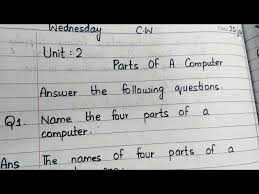 Wednesday C.W
Unit : 2
Parts Of A Computer
Answer the following questions.
Q1. Name the four parts of a
computer.
Ans The names of four parts of a